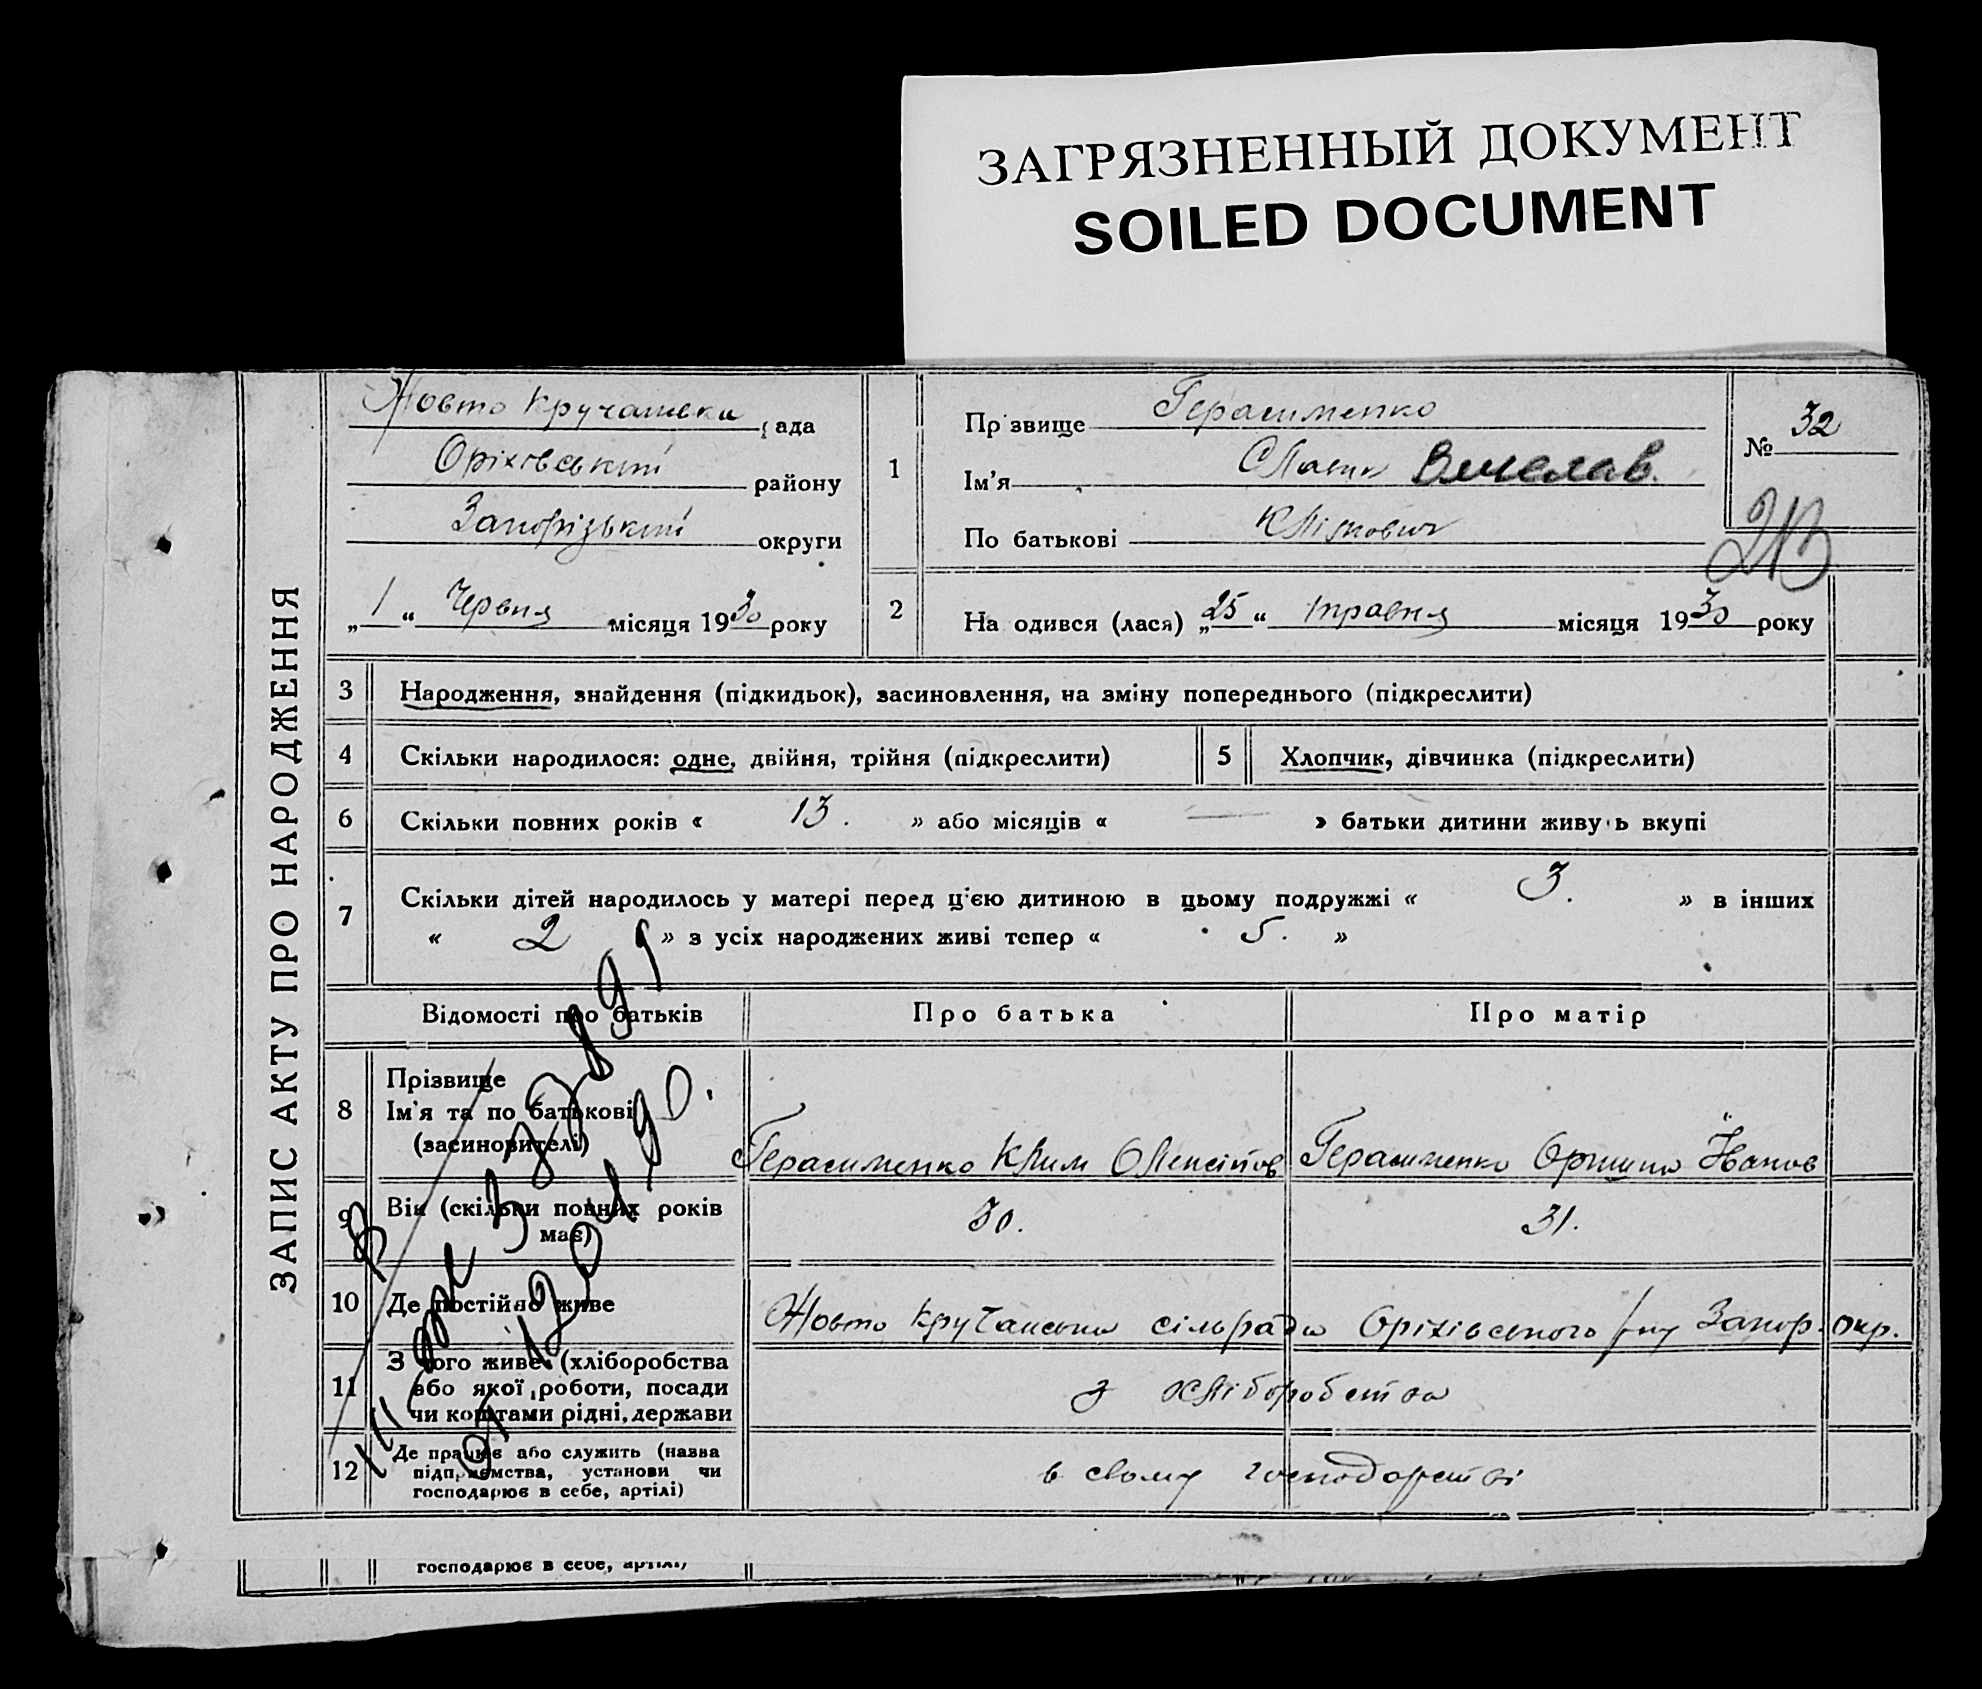 ЗАГРЯЗНЕННЫЙ ДОКУМЕНТ
SOILED DOCUMENT
ЗАПИС АКТУ ПРО НАРОДЖЕННЯ
Жовто Кручанська рада
Оріхівський району
Запорізький округи
„1“ Червня місяця 1930 року
1
Прізвище Герасименко
Ім'я Славик Вячеслав.
По батькові Клімович
№ 32
213
2
Народився (лася) „25“ травня місяця 1930 року
3 Народження, знайдення (підкидьок), засиновлення, на зміну попереднього (підкреслити)
4 Скільки народилося: одне, двійня, трійня (підкреслити) 5 Хлопчик, дівчинка (підкреслити)
6 Скільки повних років « 13. » або місяців « — » батьки дитини живуть вкупі
7 Скільки дітей народилось у матері перед цією дитиною в цьому подружжі « 3. » в інших
« 2 » з усіх народжених живі тепер « 5. »
Відомості про батьків Про батька Про матір
8 Прізвище
Ім'я та по батькові
(засиновителі)
Герасименко Клим Олексійов Герасименко Оришка Йванов
9 Вік (скільки повних років
має)
30. 31.
10 Де постійно живе
Жовто Кручанська сільрада Оріхівського р-ну Запор. окр.
11 З чого живе (хліборобства
або якої роботи, посади
чи коштами рідні, держави
з хліборобства
12 Де працює або служить (назва
підприємства, установи чи
господарює в себе, артілі)
в свому господарстві
от 12.04.90.
господарює в себе, артілі)